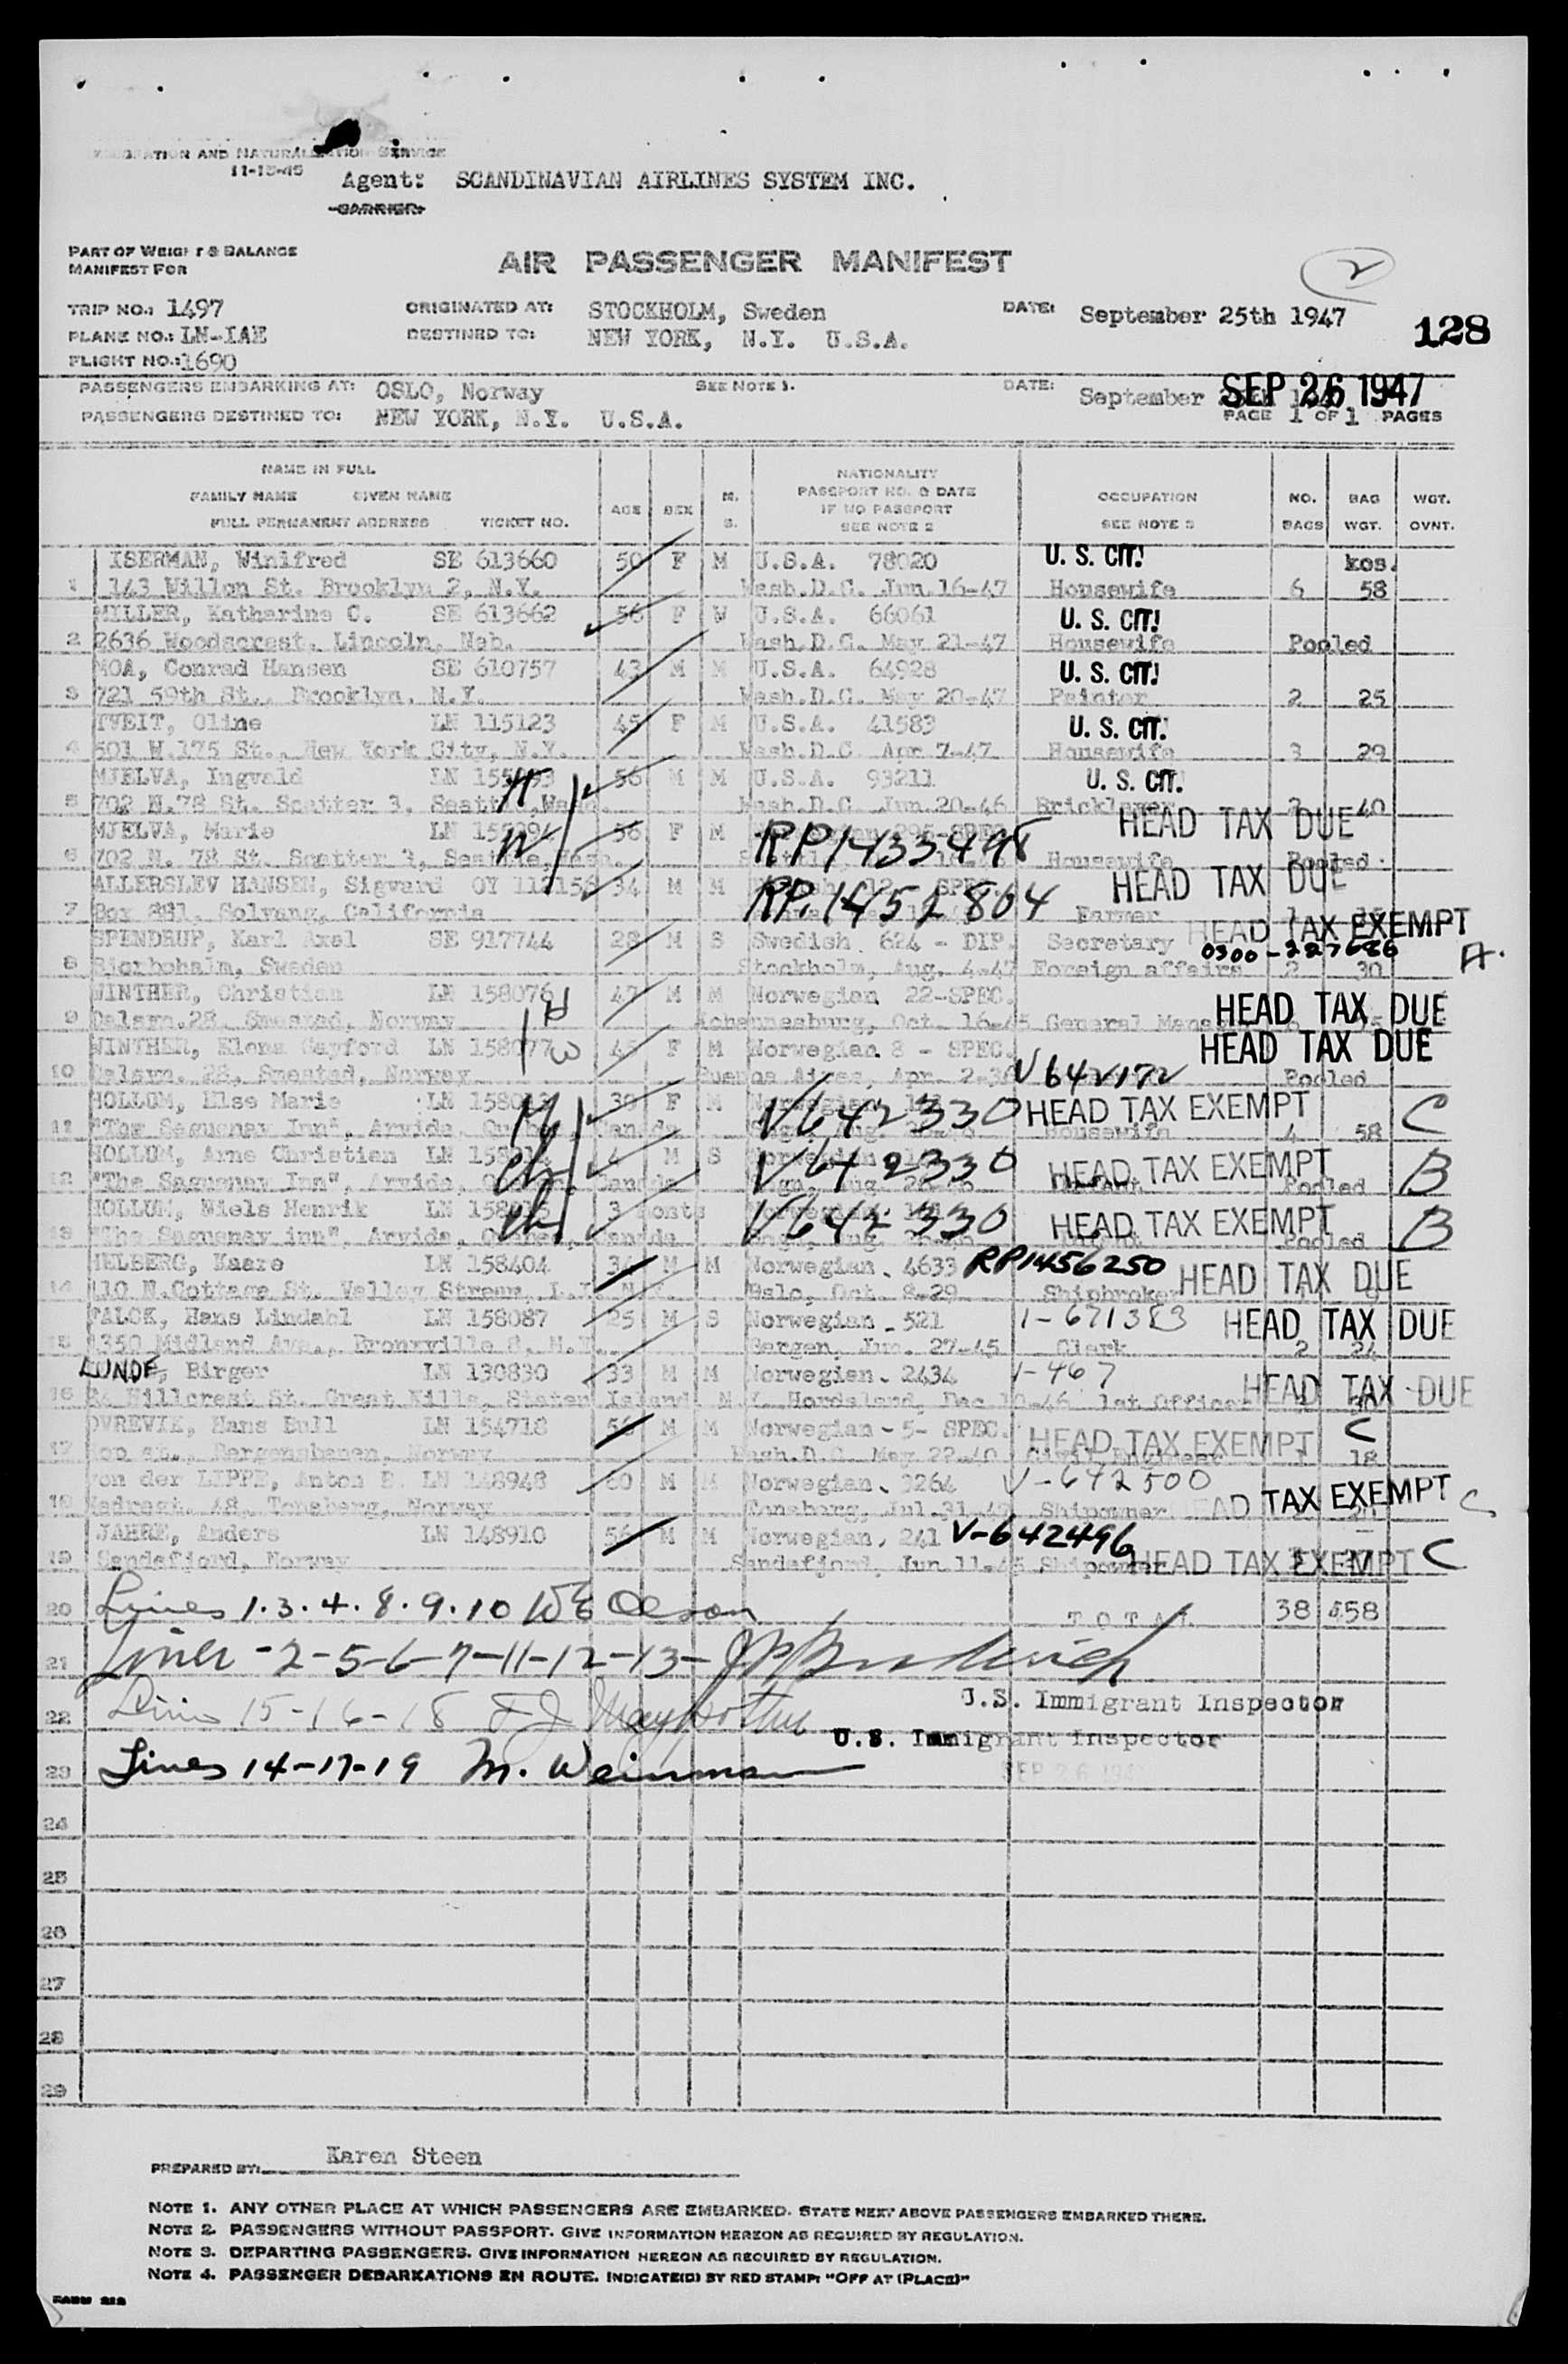 IMMIGRATION AND NATURALIZATION SERVICE
11-15-45
Agent: SCANDINAVIAN AIRLINES SYSTEM INC.
CARRIER:
PART OF WEIGHT & BALANCE
MANIFEST FOR
AIR PASSENGER MANIFEST
2
TRIP NO.: 1497 ORIGINATED AT: STOCKHOLM, Sweden DATE: September 25th 1947
PLANE NO.: LN-IAE DESTINED TO: NEW YORK, N.Y. U.S.A.
128
FLIGHT NO.: 1690
PASSENGERS EMBARKING AT: OSLO, Norway SEE NOTE 1. DATE: September SEP 26 1947
PASSENGERS DESTINED TO: NEW YORK, N.Y. U.S.A. PAGE 1 OF 1 PAGES
NAME IN FULL
FAMILY NAME GIVEN NAME
FULL PERMANENT ADDRESS TICKET NO.
AGE SEX M. S.
NATIONALITY
PASSPORT NO. & DATE
IF NO PASSPORT
SEE NOTE 2
OCCUPATION
SEE NOTE 3
NO. BAGS
BAG WGT.
WGT. OVNT.
ISERMAN, Winifred SE 613660 50 F M U.S.A. 78020 U. S. CIT. kos.
1 143 Willon St. Brooklyn 2, N.Y. Wash.D.C. Jun.16-47 Housewife 6 58
MILLER, Katharine C. SE 613662 56 F W U.S.A. 66061 U. S. CIT.
2 2636 Woodscrest, Lincoln, Neb. Wash.D.C. May 21-47 Housewife Pooled
MOA, Conrad Hansen SE 610757 43 M M U.S.A. 64928 U. S. CIT.
3 721 59th St., Brooklyn, N.Y. Wash.D.C. May 20-47 Painter 2 25
TVEIT, Oline LN 115123 45 F M U.S.A. 41583 U. S. CIT.
4 501 W.175 St., New York City, N.Y. Wash.D.C Apr 7-47 Housewife 3 29
MJELVA, Ingvald LN 56 M M U.S.A. 93211 U. S. CIT.
5 702 N.78 St. Scatter 3, Seattle, Wash. Wash.D.C. Jun.20-46 Bricklayer 40
HEAD TAX DUE
MJELVA, Marie LN 56 F M RP1433498
6 702 N. 78 St. Scatter 3, Seattle, Wash. Housewife Pooled
HEAD TAX DUE
ALLERSLEV HANSEN, Sigvard OY 112156 34 M M RP.1451804
7 Box 881, Solvang, California Farmer
HEAD TAX EXEMPT
SPENDRUP, Karl Axel SE 917744 28 M S Swedish 624 - DIP. Secretary 0300-227686
8 Bjorboholm, Sweden Stockholm, Aug. 4-47 Foreign affairs 2 30 A.
WINTHER, Christian LN 158076 47 M M Norwegian 22-SPEC. HEAD TAX DUE
9 Dalsvn.28, Smestad, Norway Johannesburg, Oct. 16-45 General Manager
WINTHER, Elena Gayford LN 158077 45 F M Norwegian 8 - SPEC. HEAD TAX DUE
10 Dalsvn. 28, Smestad, Norway Buenos Aires, Apr. 2-36 V642172 Pooled
HOLLUM, Else Marie LN 30 F M V642330 HEAD TAX EXEMPT C
11 "The Saguenay Inn", Arvida, Quebec, Canada Housewife 4 58
HOLLUM, Arne Christian LN 4 M S V642330 HEAD TAX EXEMPT B
12 "The Saguenay Inn", Arvida, Quebec, Canada Pooled
HOLLUM, Niels Henrik LN 3 months V642330 HEAD TAX EXEMPT B
13 "The Saguenay inn", Arvida, Quebec, Canada Pooled
HELBERG, Kaare LN 158404 34 M M Norwegian. 4633 RP1456250 HEAD TAX DUE
14 110 N.Cottage St. Valley Stream, L.I. N.Y. Oslo, Oct. 8-29 Shipbroker
FALCK, Hans Lindahl LN 158087 25 M S Norwegian - 521 1-671383 HEAD TAX DUE
15 1350 Midland Ave., Bronxville 8, N.Y. Bergen, Jun. 27-45 Clerk 2 24
LUNDE, Birger LN 130830 33 M M Norwegian. 2434 1-467
16 Hillcrest St. Great Kills, Staten Island N.Y. Hordaland, Dec 10-46 1st Officer HEAD TAX DUE
OVREVIK, Hans Bull LN 154718 56 M M Norwegian - 5- SPEC. HEAD TAX EXEMPT C
17 Hop st., Bergensbanen, Norway Wash.D.C. May 22-40 Civil Engineer 1 18
von der LIPPE, Anton B. LN 148948 60 M M Norwegian. 3264 V-642500
18 Nedregt. 48, Tonsberg, Norway Tonsberg, Jul.31-47 Shipowner HEAD TAX EXEMPT C
JAHRE, Anders LN 148910 56 M M Norwegian, 241 V-642496
19 Sandefjord, Norway Sandefjord, Jun.11-45 Shipowner HEAD TAX EXEMPT C
20 Lines 1.3.4.8.9.10 WE Olson TOTAL 38 558
21 Lines -2-5-6-7-11-12-13-
22 Lines 15-16-18 U.S. Immigrant Inspector
U.S. Immigrant Inspector
23 Lines 14-17-19 M. Weinman SEP 26 194
24
25
26
27
28
29
PREPARED BY: Karen Steen
NOTE 1. ANY OTHER PLACE AT WHICH PASSENGERS ARE EMBARKED. STATE NEXT ABOVE PASSENGERS EMBARKED THERE.
NOTE 2. PASSENGERS WITHOUT PASSPORT. GIVE INFORMATION HEREON AS REQUIRED BY REGULATION.
NOTE 3. DEPARTING PASSENGERS. GIVE INFORMATION HEREON AS REQUIRED BY REGULATION.
NOTE 4. PASSENGER DEBARKATIONS EN ROUTE. INDICATE(D) BY RED STAMP: "OFF AT (PLACE)"
FORM 212